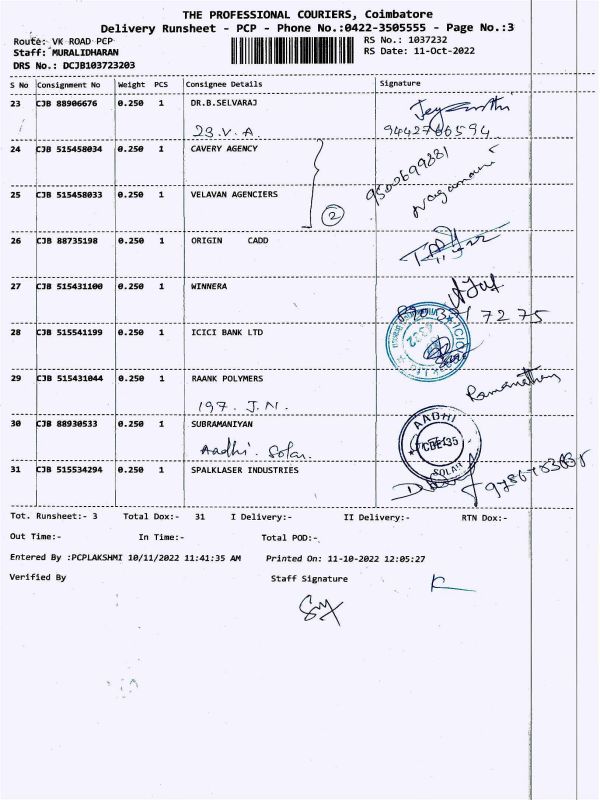 THE PROFESSIONAL COURIERS, Coimbatore
Delivery Runsheet - PCP - Phone No.:0422-3505555 - Page No.:3
Route: VK ROAD PCP
RS No.: 1037232
Staff: MURALIDHARAN
RS Date: 11-Oct-2022
DRS No.: DCJB103723203
S No Consignment No Weight PCS Consignee Details Signature
23 CJB 88906676 0.250 1 DR.B.SELVARAJ
23.V.A. 9442766594
24 CJB 515458034 0.250 1 CAVERY AGENCY
9500699881
25 CJB 515458033 0.250 1 VELAVAN AGENCIERS
Nagamani
2
26 CJB 88735198 0.250 1 ORIGIN CADD
27 CJB 515431100 0.250 1 WINNERA
7275
28 CJB 515541199 0.250 1 ICICI BANK LTD
29 CJB 515431044 0.250 1 RAANK POLYMERS
Ramanathan
197. J.N.
30 CJB 88930533 0.250 1 SUBRAMANIYAN
Aadhi. Solar.
AADHI
CBE-35
SOLAR
31 CJB 515534294 0.250 1 SPALKLASER INDUSTRIES
Tot. Runsheet:- 3 Total Dox:- 31 I Delivery:- II Delivery:- RTN Dox:-
Out Time:- In Time:- Total POD:-
Entered By :PCPLAKSHMI 10/11/2022 11:41:35 AM Printed On: 11-10-2022 12:05:27
Verified By Staff Signature